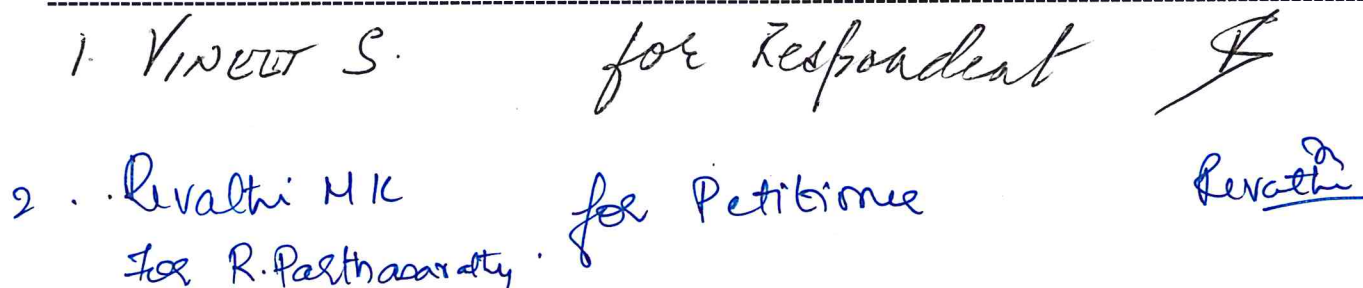 1. VINEET S. for Respondent
2. Revathi MK for Petitioner Revathi
For R. Parthasarathy.